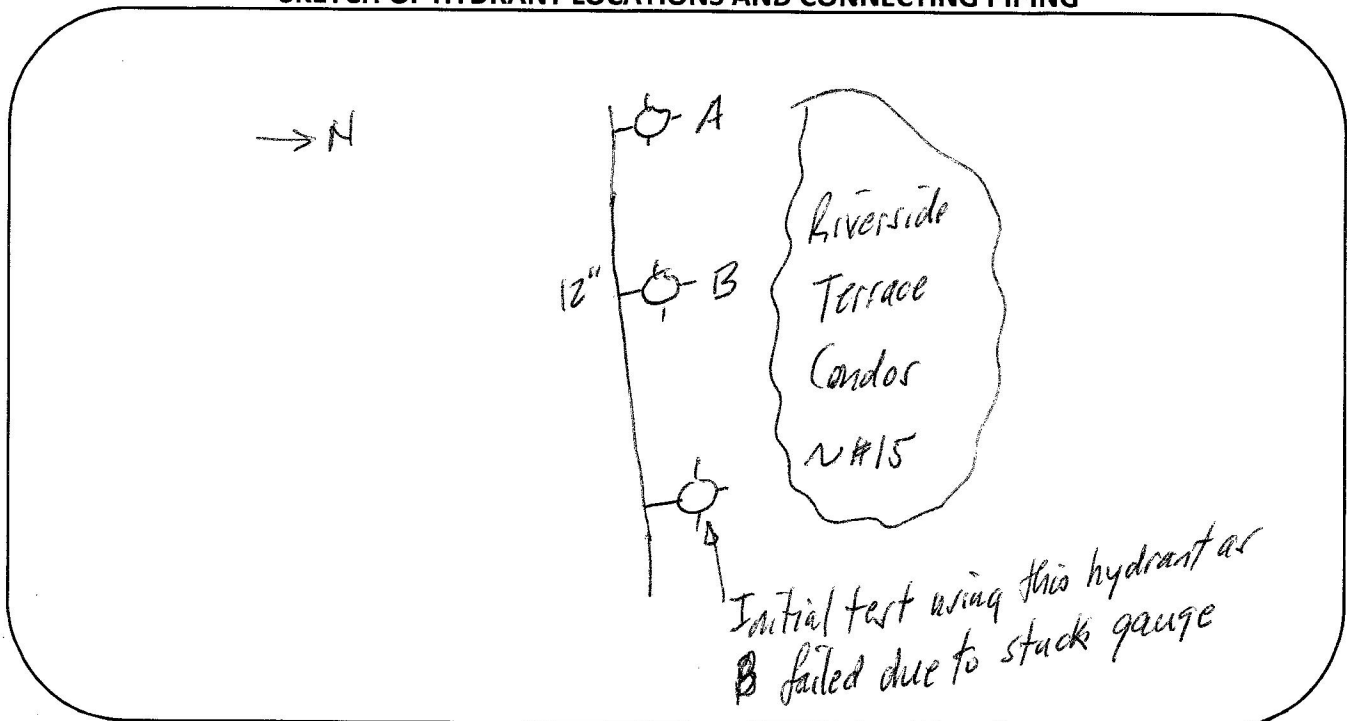 SKETCH OF HYDRANT LOCATIONS AND CONNECTING PIPING
→ N
A
12"
B
Riverside
Terrace
Condos
N#15
Initial test using this hydrant as
B failed due to stuck gauge